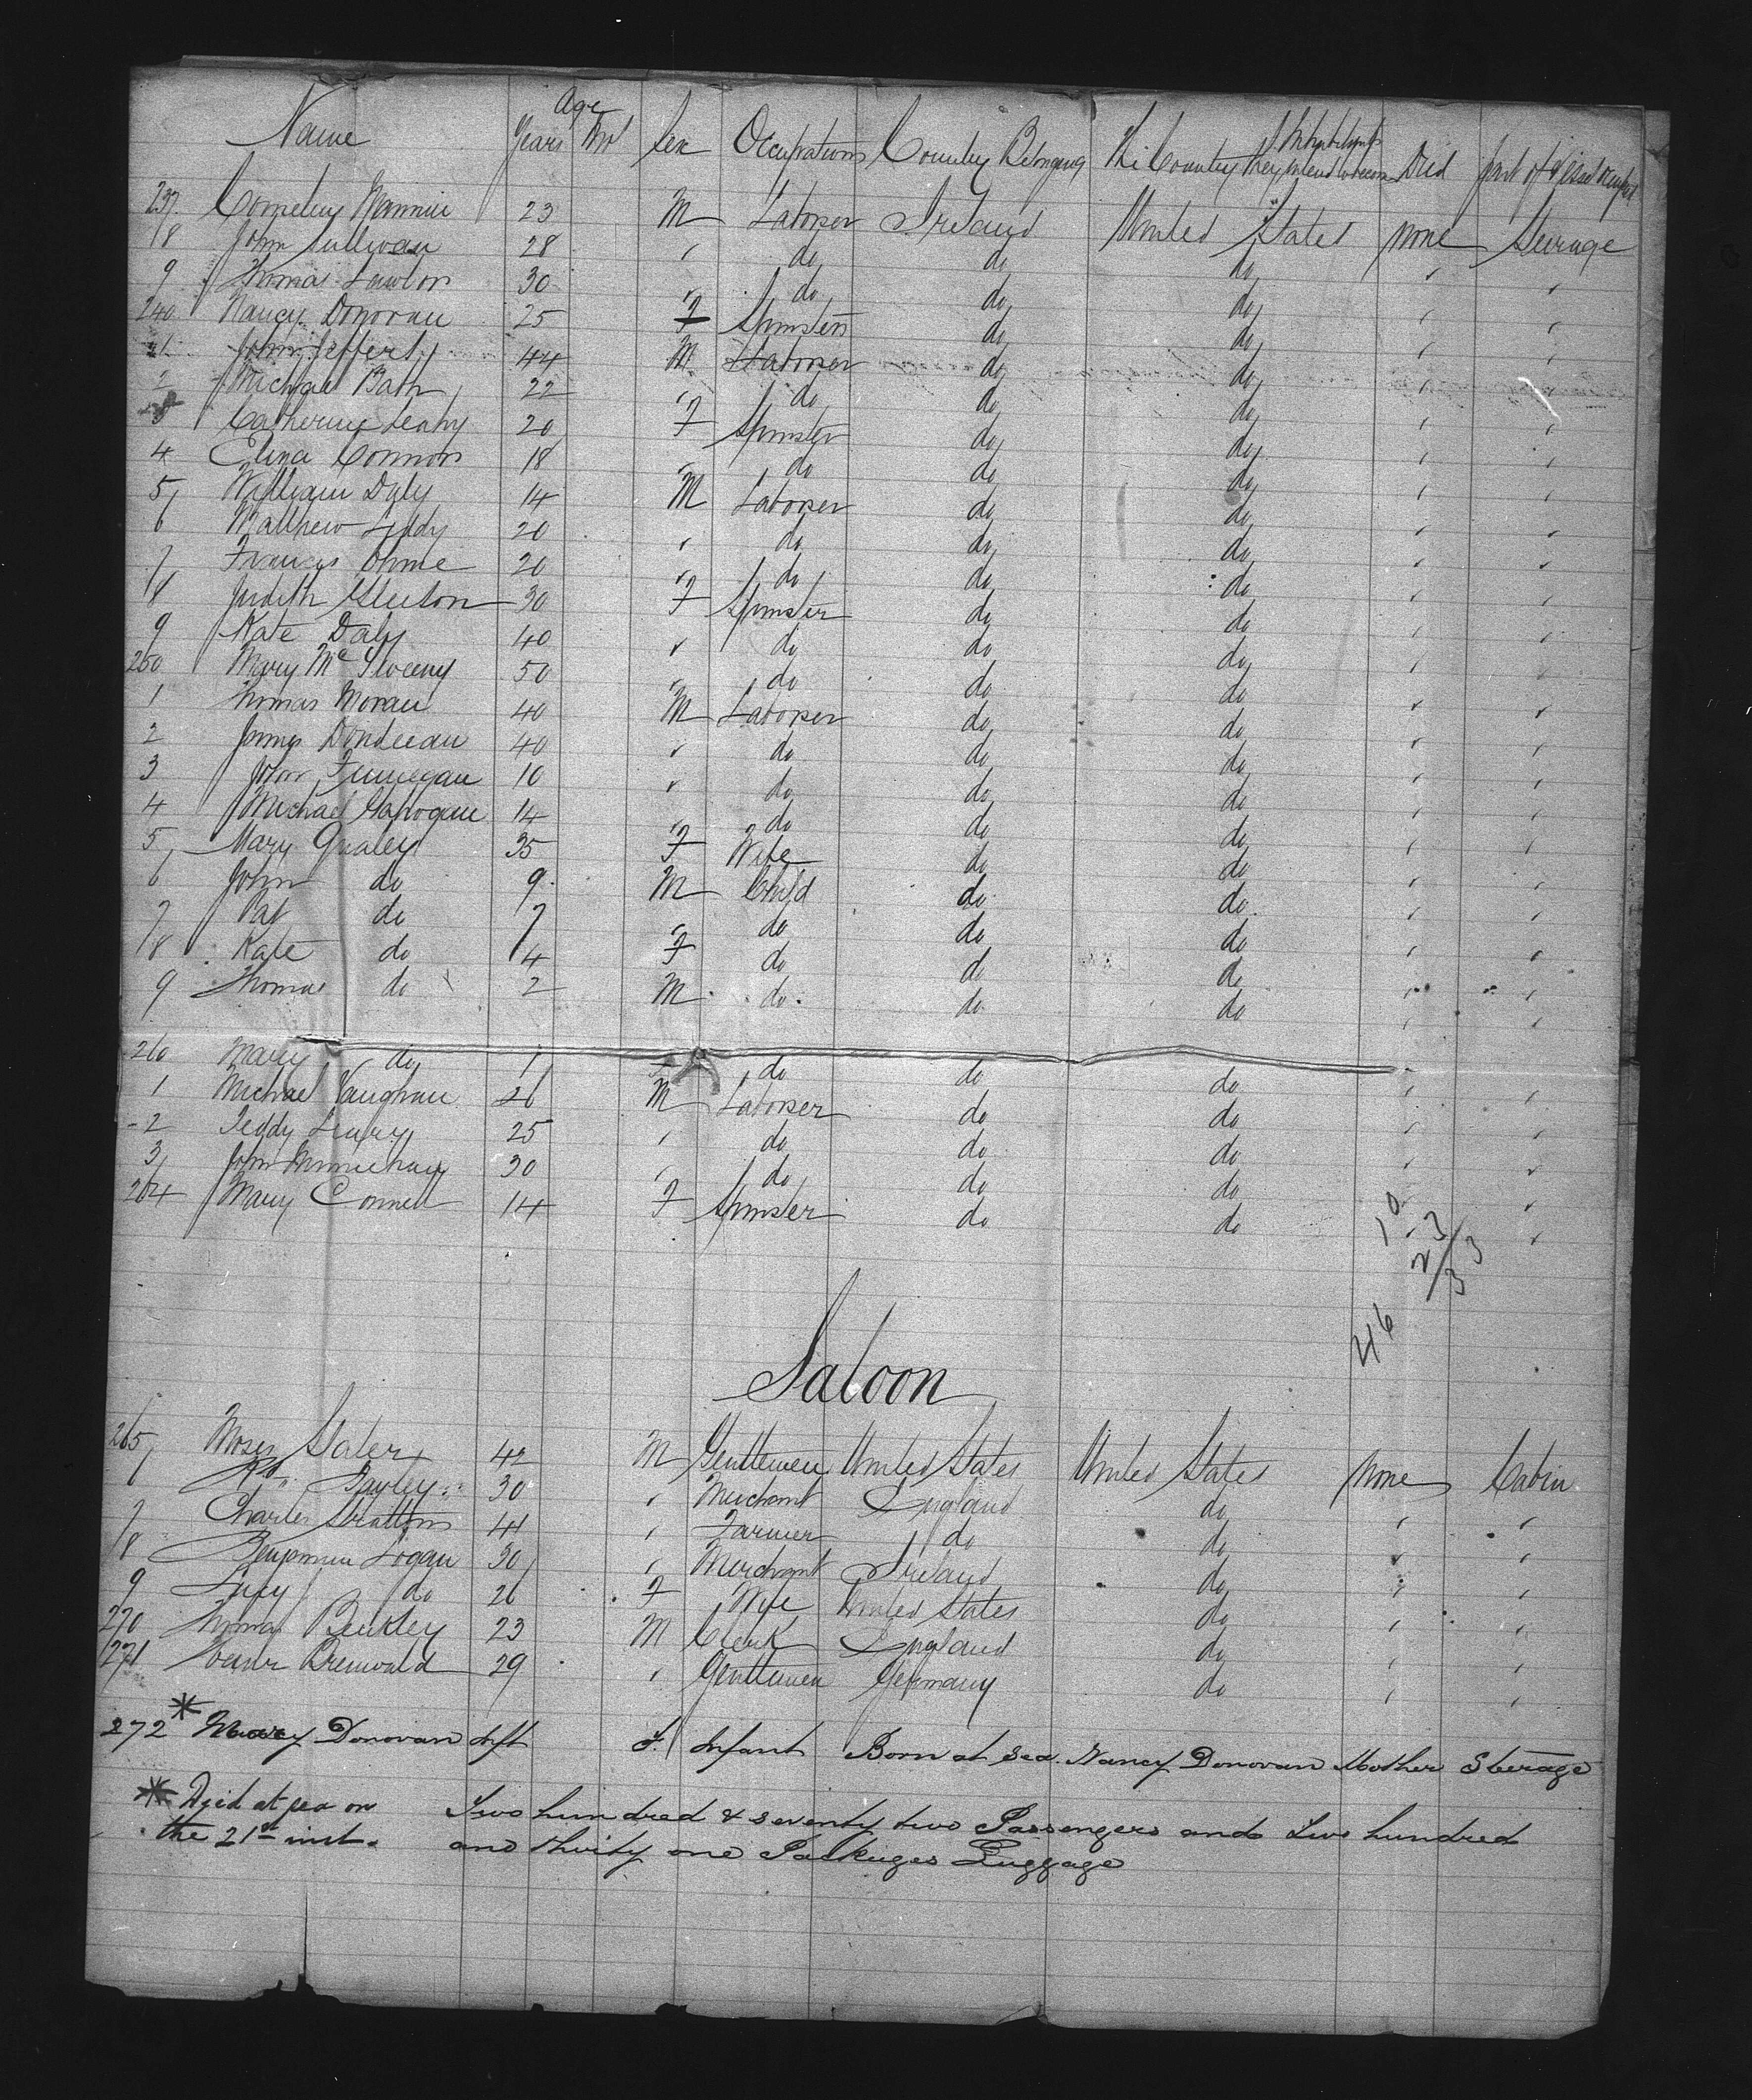 Name Age Years Mo Sex Occupation Country Belonging The Country of Inhabitants they intend to become Died part of Vessel occupied
237 23 M Laborer Ireland United States none Steerage
8 John Sullivan 28 " do do do " "
9 Thomas Lawlor 30 " do do do " "
240 Nancy Donovan 25 F Spinster do do " "
1 John Jeffery 44 M Laborer do do " "
2 Michael Bath 22 " do do do " "
3 Catherine Leahy 20 F Spinster do do " "
4 Eliza Connors 18 " do do do " "
5 William Daly 14 M Laborer do do " "
6 Matthew Liddy 20 " do do do " "
7 Frances 20 " do do do " "
8 Judith Gleeson 30 F Spinster do do " "
9 Kate Daly 40 " do do do " "
250 Mary 50 " do do do " "
1 Thomas Moran 40 M Laborer do do " "
2 James 40 " do do do " "
3 John Finnegan 10 " do do do " "
4 Michael 14 " do do do " "
5 Mary Quales 35 F Wife do do " "
6 John do 9 M Child do do " "
7 Pat do 7 " do do do " "
8 Kate do 4 F do do do " "
9 Thomas do 2 M do do do " "
260 Mary do 1 F do do do " "
1 Michael Vaughan 26 M Laborer do do " "
2 Teddy Leary 25 " do do do " "
3 John 30 " do do do " "
264 Mary Connell 14 F Spinster do do " "
10
23/33
46
Saloon
265 Moses 42 M Gentlemen United States United States none Cabin
6 Bayley 30 " Merchant England do " "
7 Charles Stratton 41 " Farmer do do " "
8 Benjamin Logan 30 " Merchant Ireland do " "
9 Lucy do 26 F Wife United States do " "
270 Thomas Bentley 23 M Clerk England do " "
271 29 " Gentlemen Germany do " "
272 * Donovan Inft F. Infant Born at Sea. Nancy Donovan Mother Steerage
* Died at sea on
the 21st inst.
Two hundred & seventy two Passengers and Two hundred
and thirty one Packages Luggage